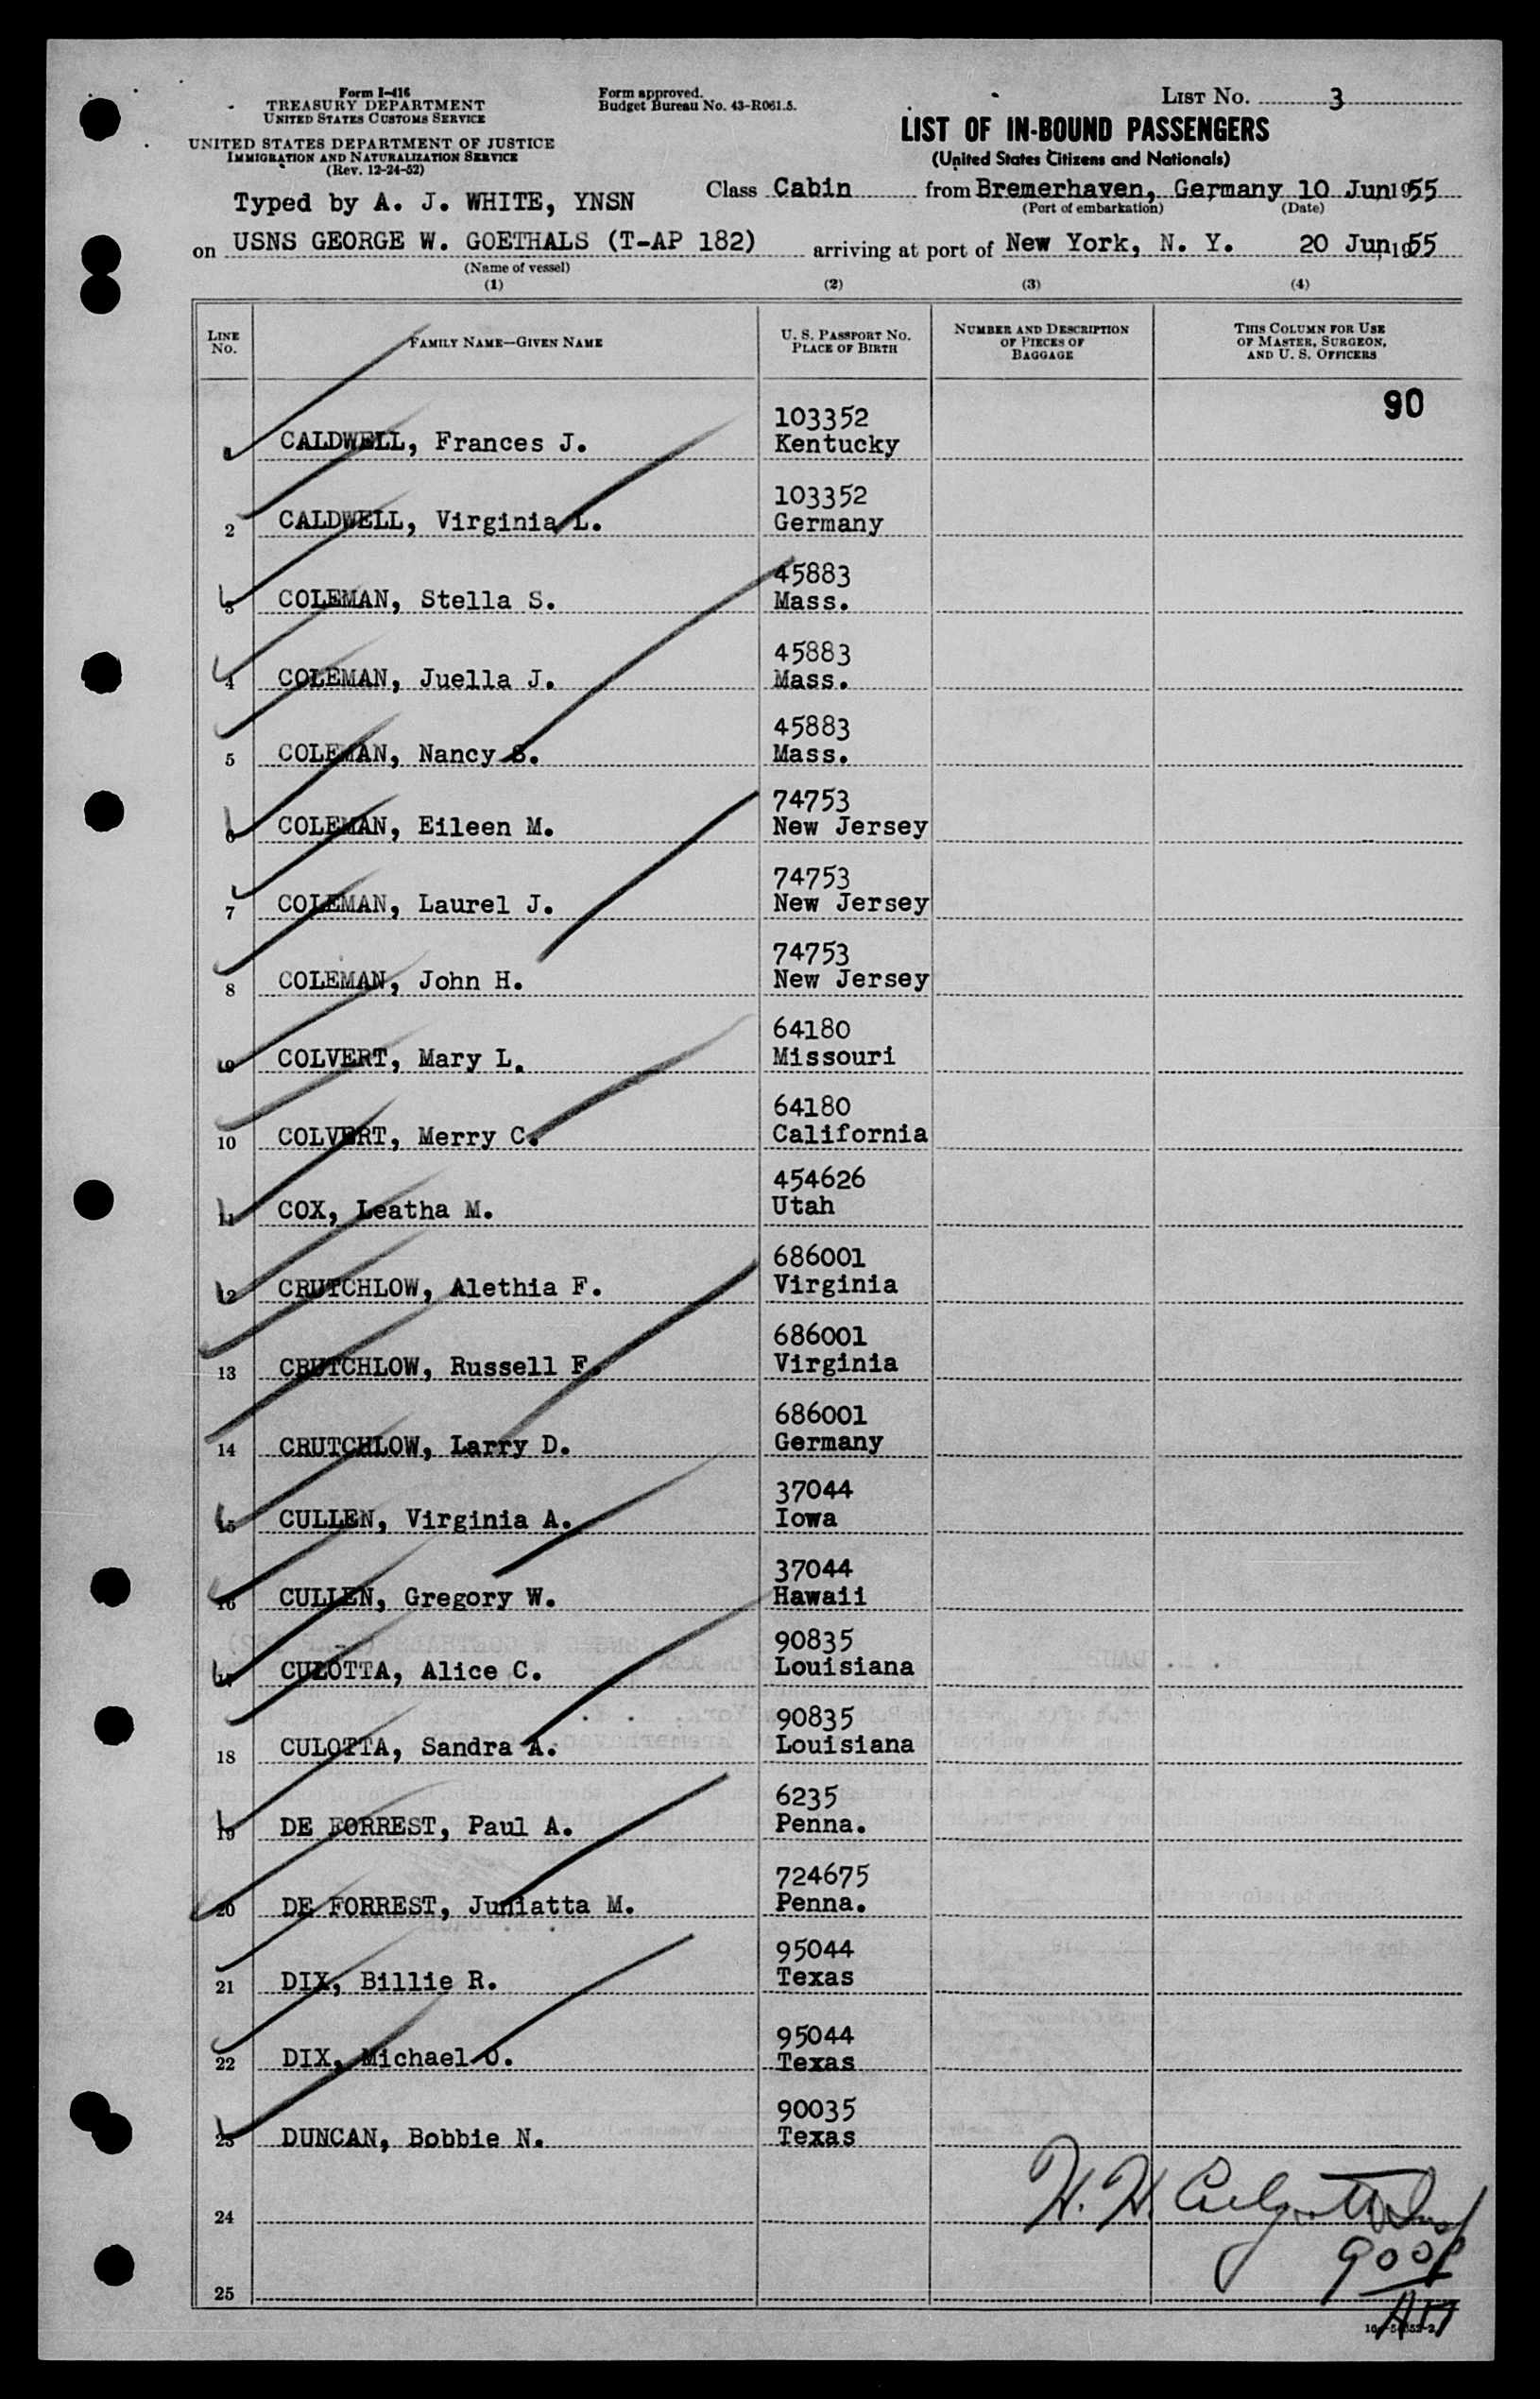 Form I-416
TREASURY DEPARTMENT
UNITED STATES CUSTOMS SERVICE
UNITED STATES DEPARTMENT OF JUSTICE
IMMIGRATION AND NATURALIZATION SERVICE
(Rev. 12-24-52)
Form approved.
Budget Bureau No. 43-R061.5.
LIST NO. 3
LIST OF IN-BOUND PASSENGERS
(United States Citizens and Nationals)
Typed by A. J. WHITE, YNSN
Class Cabin from Bremerhaven, Germany 10 Jun, 1955
(Port of embarkation) (Date)
on USNS GEORGE W. GOETHALS (T-AP 182) arriving at port of New York, N. Y. 20 Jun, 1955
(Name of vessel)
(1) (2) (3) (4)
LINE NO. FAMILY NAME—GIVEN NAME U. S. PASSPORT NO. PLACE OF BIRTH NUMBER AND DESCRIPTION OF PIECES OF BAGGAGE THIS COLUMN FOR USE OF MASTER, SURGEON, AND U. S. OFFICERS
90
103352
CALDWELL, Frances J. Kentucky
103352
2 CALDWELL, Virginia L. Germany
45883
3 COLEMAN, Stella S. Mass.
45883
4 COLEMAN, Juella J. Mass.
45883
5 COLEMAN, Nancy S. Mass.
74753
6 COLEMAN, Eileen M. New Jersey
74753
7 COLEMAN, Laurel J. New Jersey
74753
8 COLEMAN, John H. New Jersey
64180
9 COLVERT, Mary L. Missouri
64180
10 COLVERT, Merry C. California
454626
11 COX, Leatha M. Utah
686001
12 CRUTCHLOW, Alethia F. Virginia
686001
13 CRUTCHLOW, Russell F. Virginia
686001
14 CRUTCHLOW, Larry D. Germany
37044
15 CULLEN, Virginia A. Iowa
37044
16 CULLEN, Gregory W. Hawaii
90835
17 CULOTTA, Alice C. Louisiana
90835
18 CULOTTA, Sandra A. Louisiana
6235
19 DE FORREST, Paul A. Penna.
724675
20 DE FORREST, Juniatta M. Penna.
95044
21 DIX, Billie R. Texas
95044
22 DIX, Michael O. Texas
90035
23 DUNCAN, Bobbie N. Texas
24
25